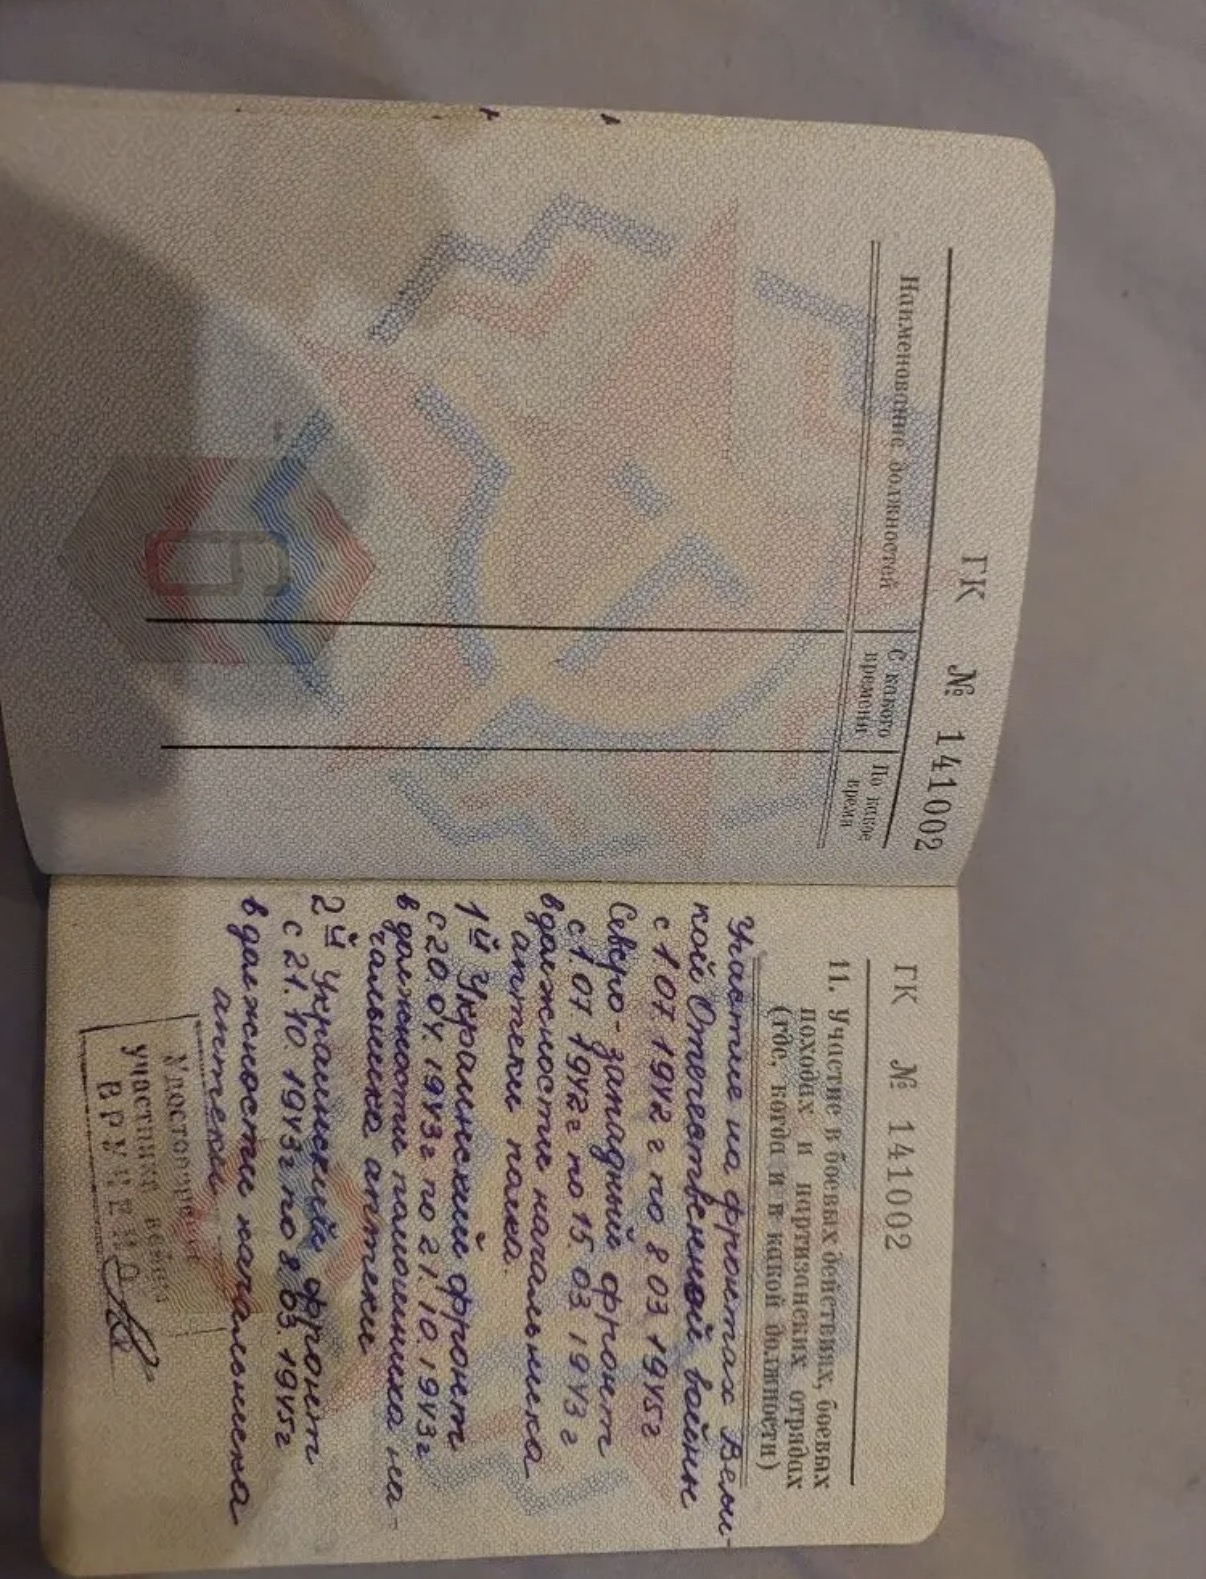 ГК № 141002
Наименование должностей
С какого
времени
По какое
время
6
ГК № 141002
11. Участие в боевых действиях, боевых
походах и партизанских отрядах
(где, когда и в какой должности)
Участие на фронтах Вели-
кой Отечественной войны
с 1 07 1942 г по 8 03 1945 г
Северо-западний фронт
с 1.07 1942 г по 15.03 1943 г
в должности начальника
аптеки полка.
1й Украинский фронт
с 20.04.1943 г по 21.10.1943 г
в должности помощника на-
чальника аптеки
2й Украинский фронт
с 21.10 1943 г по 8 03.1945 г
в должности начальника
аптеки
Удостоверение
участника войны
ВРУЧЕНО